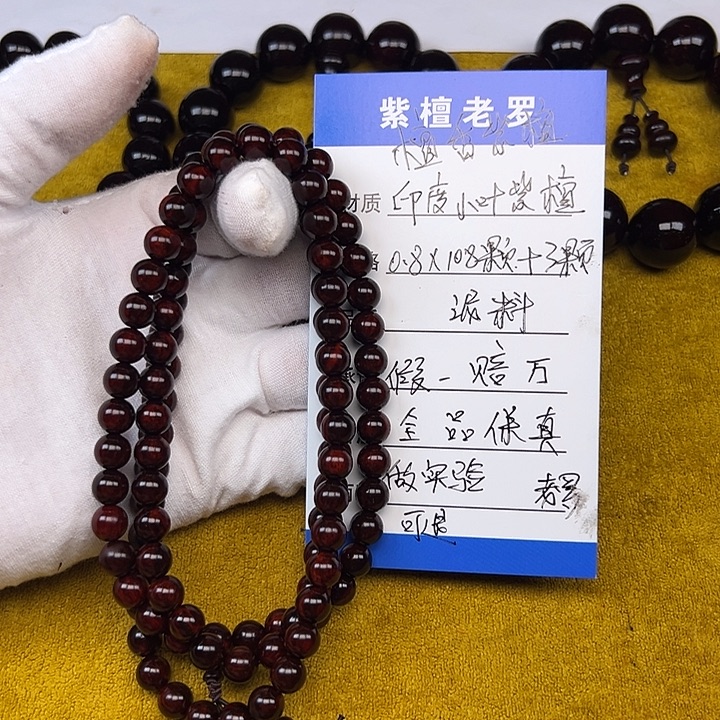 紫檀老罗
檀香紫檀
材质 印度小叶紫檀
格 0.8×108颗+3颗
泥料
假一赔万
全品保真
做实验 老罗
可退